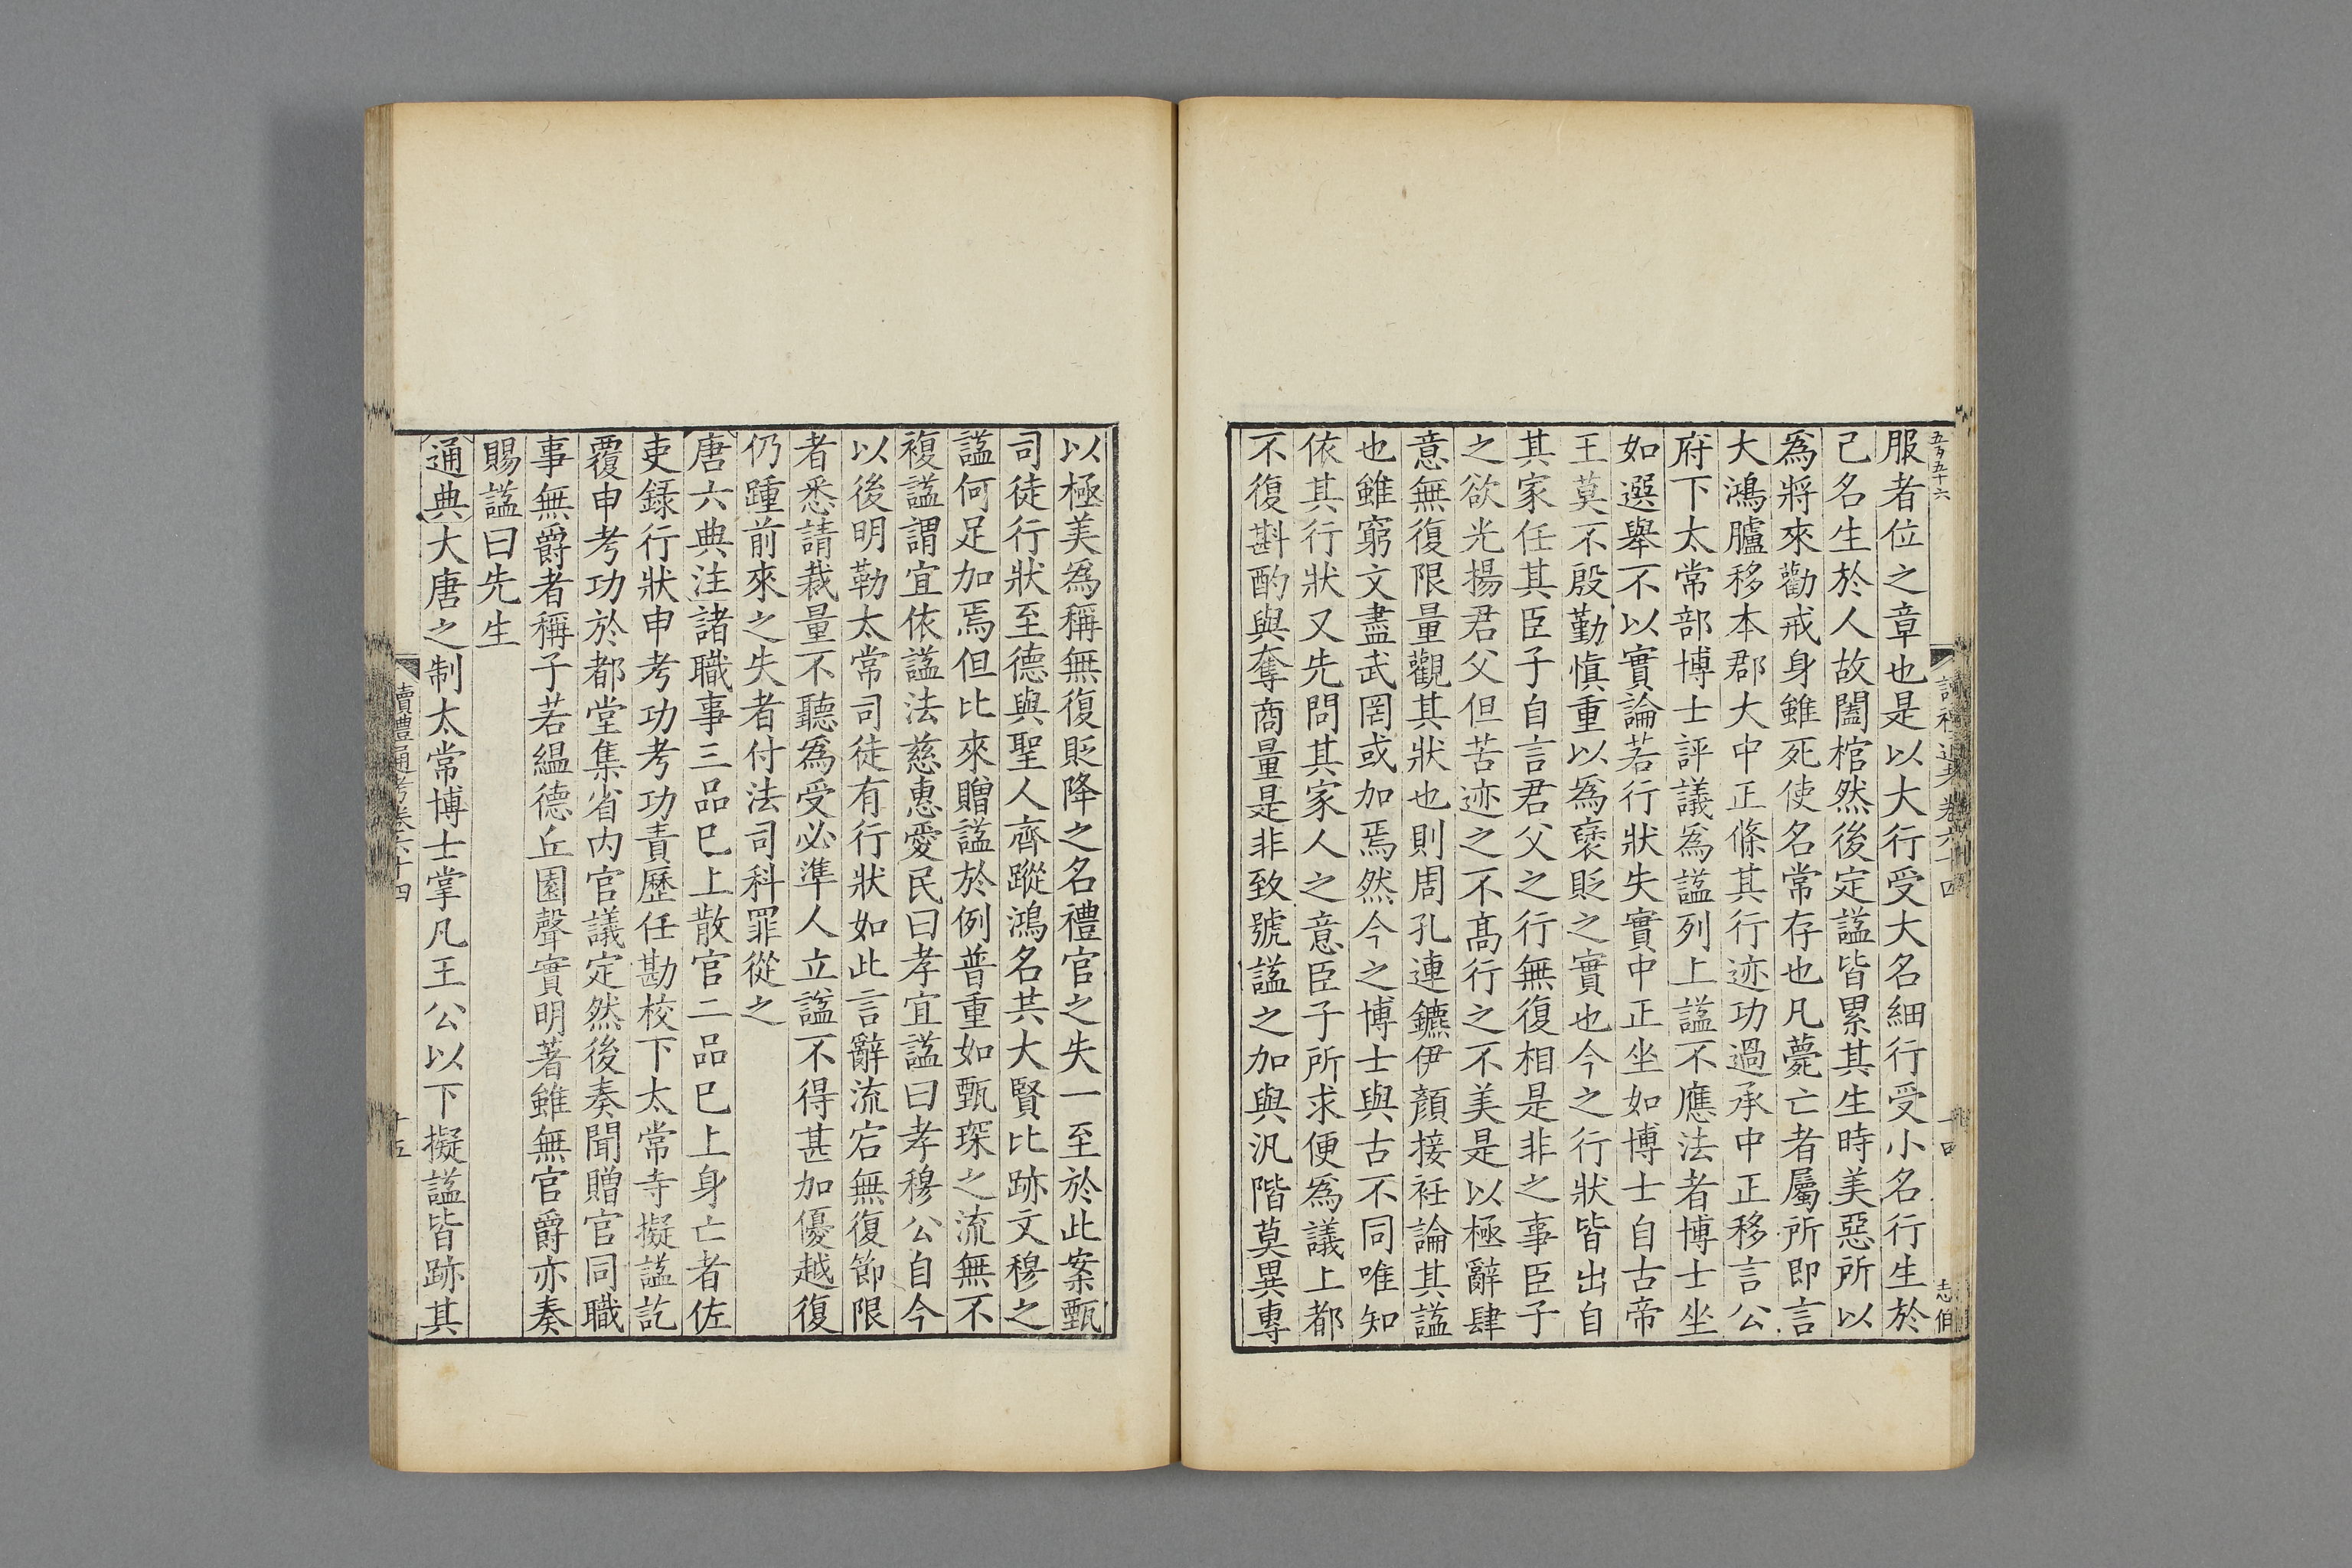 五百五十六
讀禮通考卷六十四
十四
志伯
服者位之章也是以大行受大名細行受小名行生於
己名生於人故闔棺然後定諡皆累其生時美惡所以
爲將來勸戒身雖死使名常存也凡薨亡者屬所即言
大鴻臚移本郡大中正條其行迹功過承中正移言公
府下太常部博士評議爲諡列上諡不應法者博士坐
如選舉不以實論若行狀失實中正坐如博士自古帝
王莫不殷勤慎重以爲褒貶之實也今之行狀皆出自
其家任其臣子自言君父之行無復相是非之事臣子
之欲光揚君父但苦迹之不高行之不美是以極辭肆
意無復限量觀其狀也則周孔連鑣伊顏接衽論其諡
也雖窮文盡武罔或加焉然今之博士與古不同唯知
依其行狀又先問其家人之意臣子所求便爲議上都
不復斟酌與奪商量是非致號諡之加與汎階莫異專
以極美爲稱無復貶降之名禮官之失一至於此案甄
司徒行狀至德與聖人齊蹤鴻名共大賢比跡文穆之
諡何足加焉但比來贈諡於例普重如甄琛之流無不
複諡謂宜依諡法慈惠愛民曰孝宜諡曰孝穆公自今
以後明勒太常司徒有行狀如此言辭流宕無復節限
者悉請裁量不聽爲受必準人立諡不得甚加優越復
仍踵前來之失者付法司科罪從之
唐六典注諸職事三品巳上散官二品巳上身亡者佐
吏録行狀申考功考功責歷任勘校下太常寺擬諡訖
覆申考功於都堂集省内官議定然後奏聞贈官同職
事無爵者稱子若縕德丘園聲實明著雖無官爵亦奏
賜諡曰先生
通典大唐之制太常博士掌凡王公以下擬諡皆跡其
讀禮通考卷六十四
十五